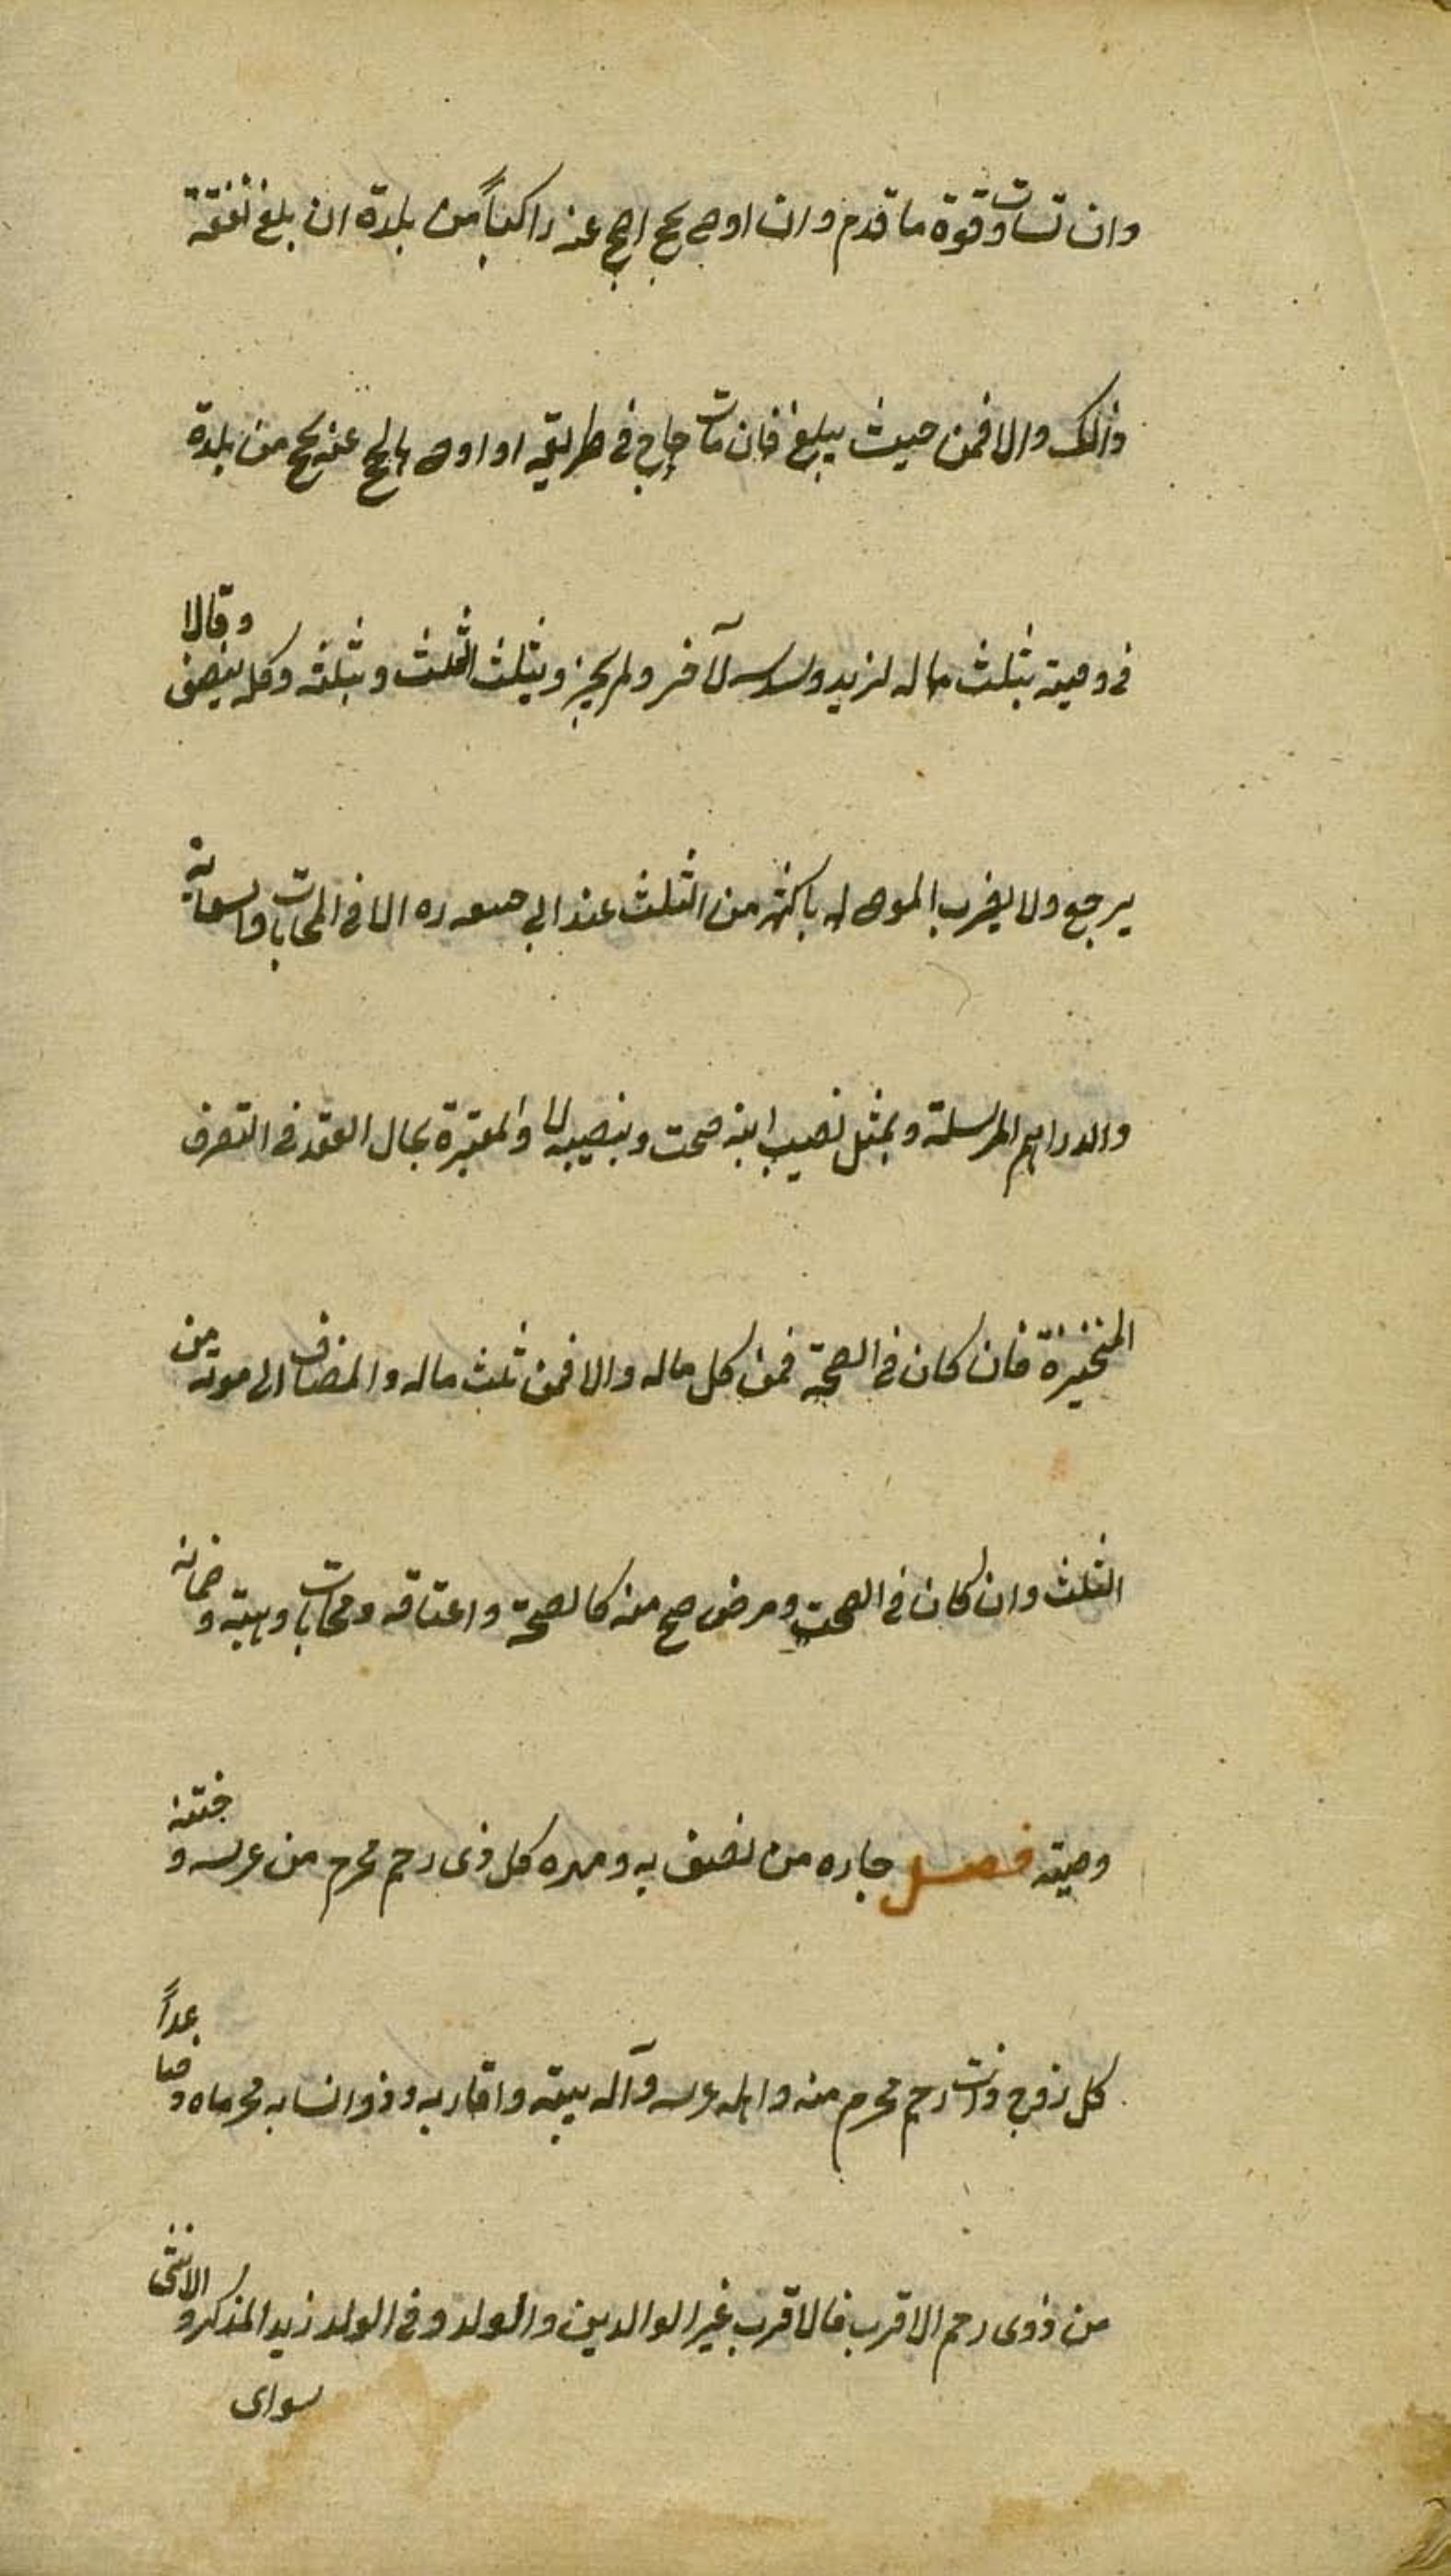 وان تساوت قوة ما قدم وان اوصى بحج احج عنه راكباً من بلدة ان بلغ نفقته
ذالك والا فمن حيث يبلغ فان مات حاج في طريقه او اوصى بالحج عنه يحج من بلدة
في وصيته بثلث ماله لزيد وسدسه لآخر ولم يجز وبثلث الثلث وبثلثه وكله ينصف وقالا
يرجع ولا يضرب الموصى له باكثر من الثلث عند ابي حنيفة ره الا في المحابات والسعاية
والدراهم المرسلة وبمثل نصيب ابنه صحت وبنصيبه لا والمعتبرة بحال العقد في التصرف
المنخيزة فان كان في الصحة فمن كل ماله والا فمن ثلث ماله والمضاف الى موته من
الثلث وان كان في الصحت ومرض صح منه كالصحة واعتاقه ومحابات وهبته وضمانه
وصيته فصل جاره من لصق به وصهره كل ذي رحم محرم من عرسه وختنه
كل زوج ذات رحم محرم منه واهله عرسه وآله بيته واقاربه وذو انسابه محرماه فصاعداً
من ذوى رحم الاقرب فالاقرب غير الوالدين والولد وفي الولد زيد المذكر والانثى
سواى